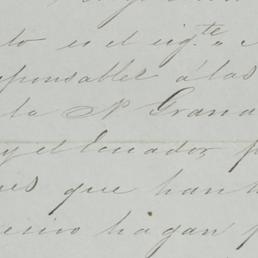 to es el sig.te
sponsables á las
la N Grana
y el Ecuador, p
es que han
hagan p